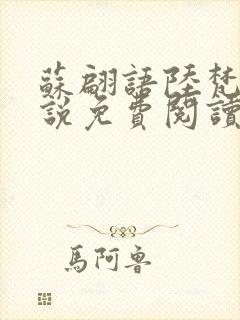 蘇翩語陸梵
說免費閱讀
馬阿魯